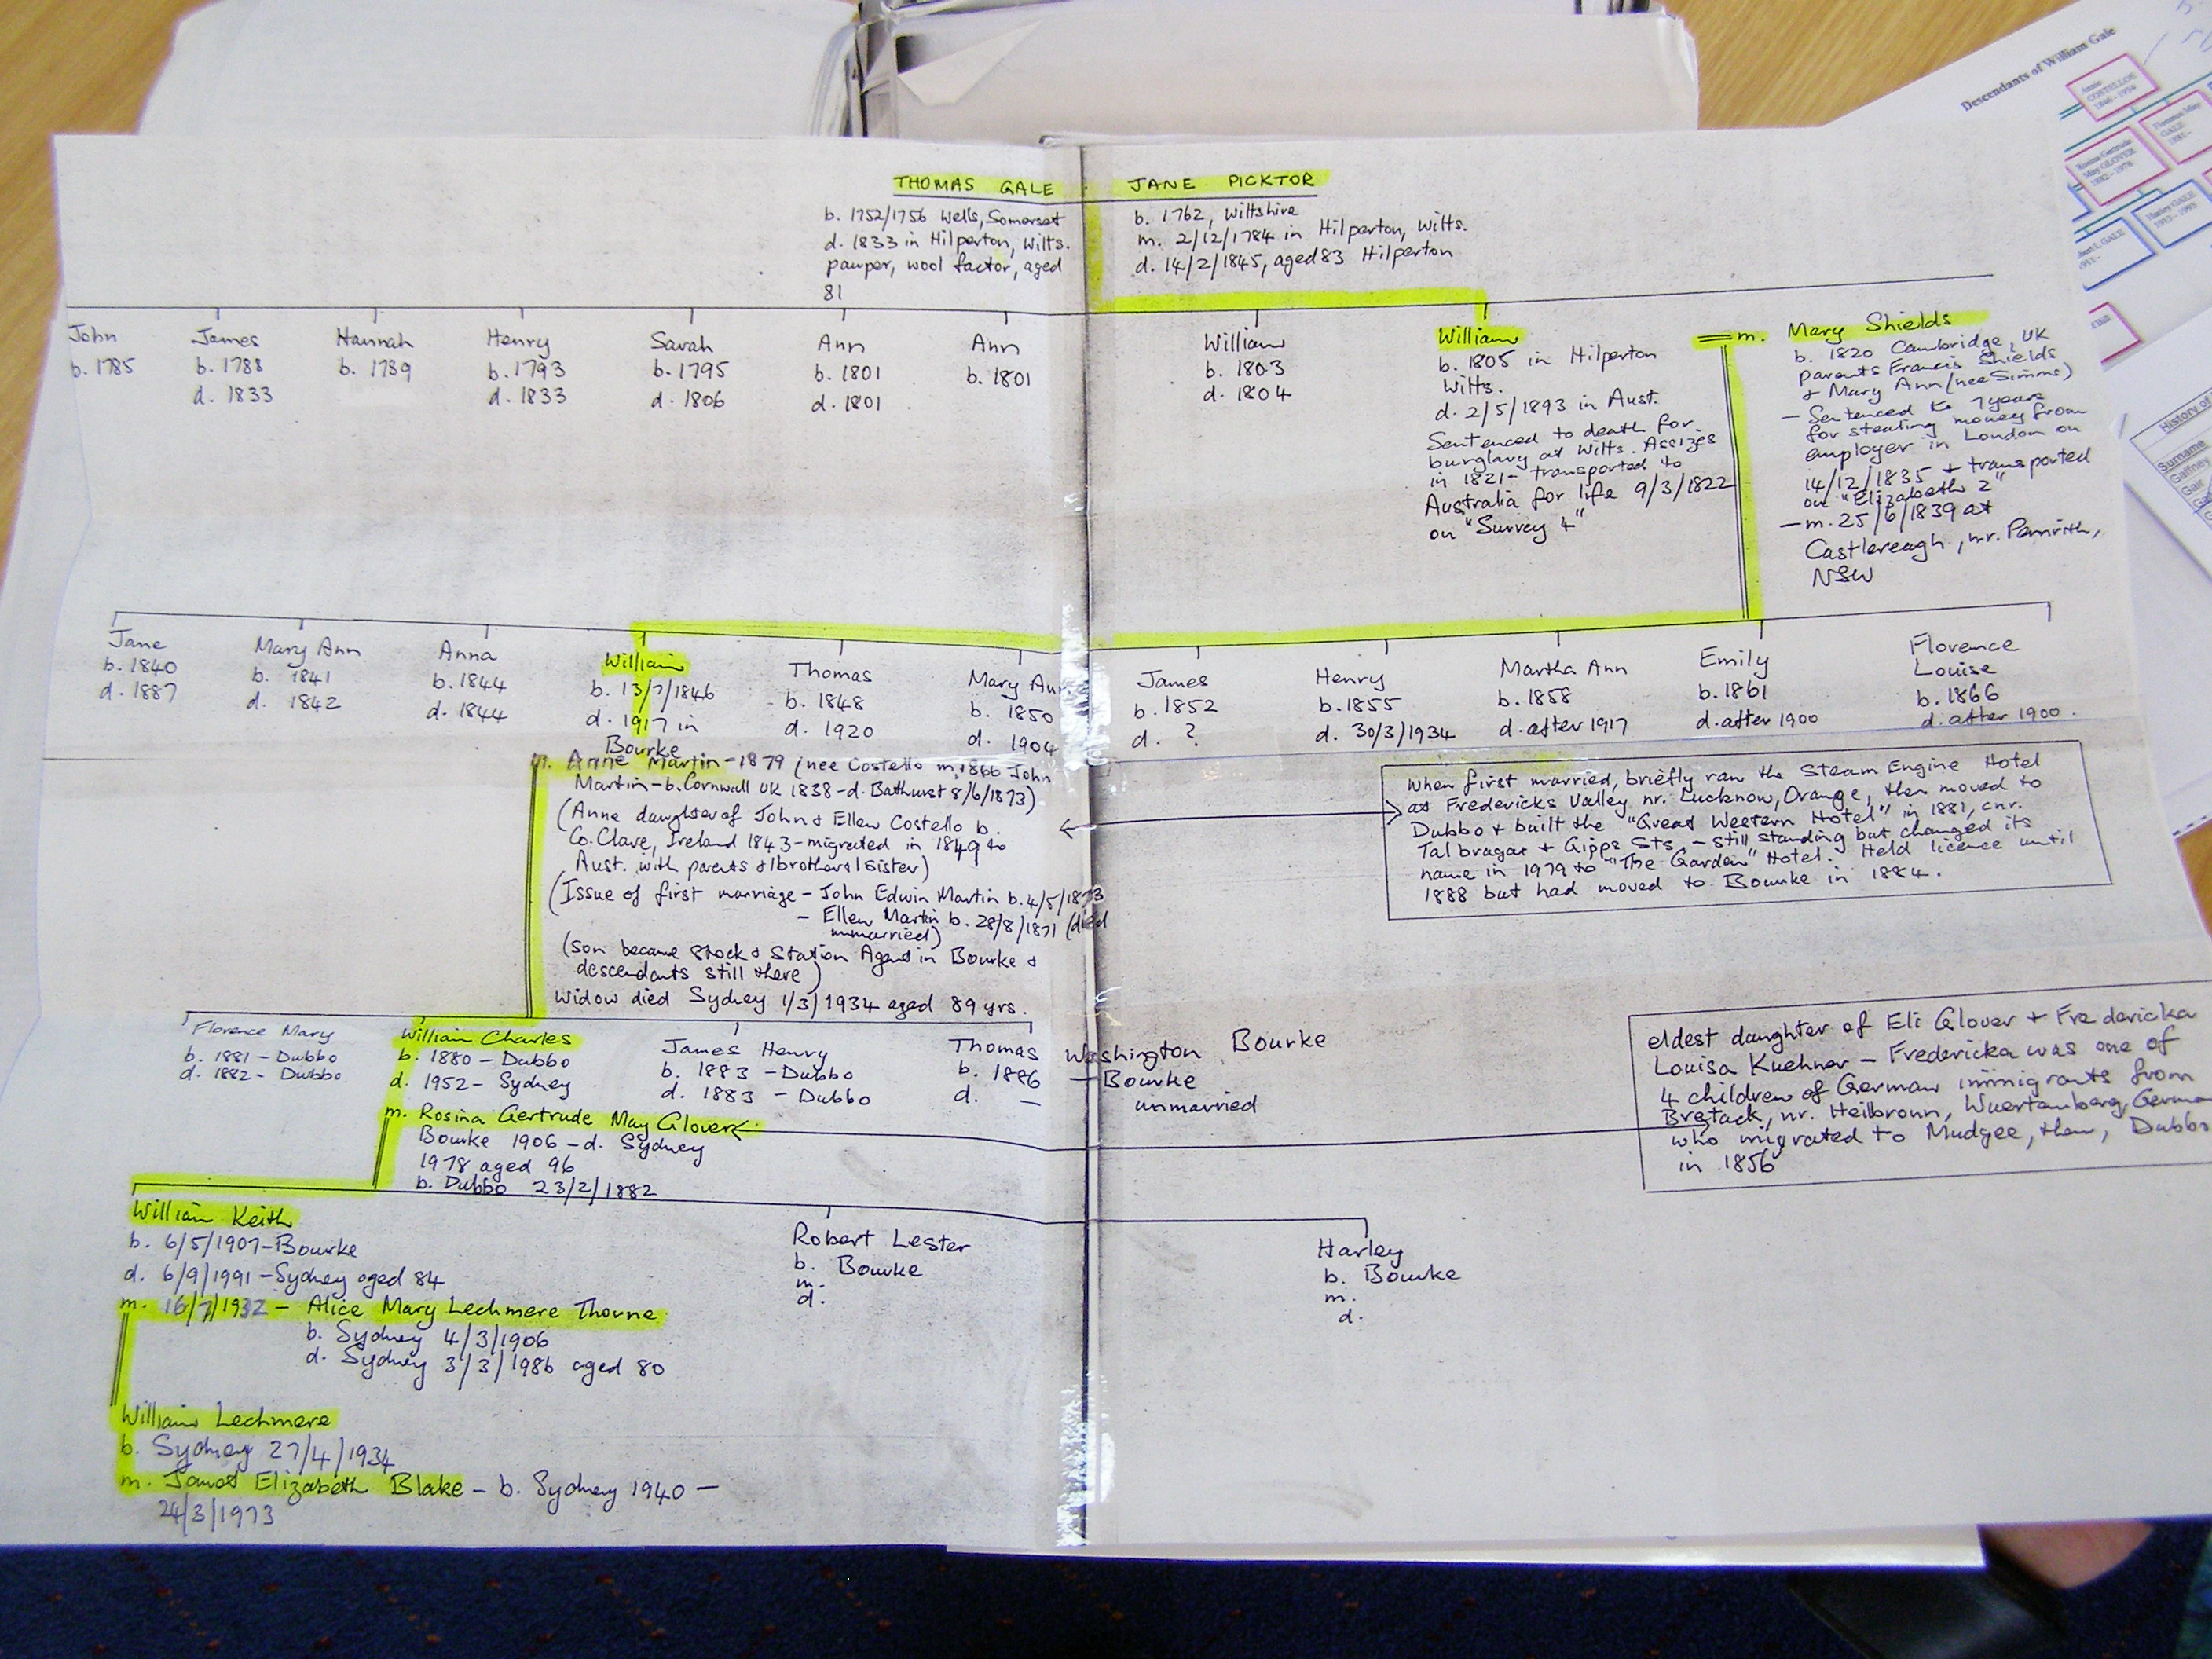 Descendants of William Gale
Annie
COSTELLOE
Rosina Gertrude
May GLOVER
1882 - 1978
Florence May
GALE
1881 -
Harley GALE
History of
Surname
Gaffney
THOMAS GALE
b. 1752/1756 Wells, Somerset
d. 1833 in Hilperton, Wilts.
pauper, wool factor, aged
81
JANE PICKTOR
b. 1762, Wiltshire
m. 2/12/1784 in Hilperton, Wilts.
d. 14/2/1845, aged 83 Hilperton
John
b. 1785
James
b. 1788
d. 1833
Hannah
b. 1789
Henry
b. 1793
d. 1833
Sarah
b. 1795
d. 1806
Ann
b. 1801
d. 1801
Ann
b. 1801
William
b. 1803
d. 1804
William
b. 1805 in Hilperton
Wilts.
d. 2/5/1893 in Aust.
Sentenced to death for
burglary at Wilts. Assizes
in 1821 - transported to
Australia for life 9/3/1822
on "Surrey 4"
m. Mary Shields
b. 1820 Cambridge, UK
parents Francis Shields
+ Mary Ann (nee Simms)
- Sentenced to 7 years
for stealing money from
employer in London on
14/12/1835 + transported
on "Elizabeth 2"
- m. 25/6/1839 at
Castlereagh, nr. Penrith,
NSW
Jane
b. 1840
d. 1887
Mary Ann
b. 1841
d. 1842
Anna
b. 1844
d. 1844
William
b. 13/7/1846
d. 1917 in
Bourke
Thomas
b. 1848
d. 1920
Mary Ann
b. 1850
d. 1904
James
b. 1852
d. ?
Henry
b. 1855
d. 30/3/1934
Martha Ann
b. 1858
d. after 1917
Emily
b. 1861
d. after 1900
Florence
Louise
b. 1866
d. after 1900.
m. Anne Martin - 1879 (nee Costello m. 1866 John
Martin - b. Cornwall UK 1838 - d. Bathurst 8/6/1873)
(Anne daughter of John + Ellen Costello b.
Co. Clare, Ireland 1843 - migrated in 1849 to
Aust. with parents + 1 brother + 1 sister)
(Issue of first marriage - John Edwin Martin b. 4/5/1873
- Ellen Martin b. 28/8/1871 (died
unmarried)
(son became Stock + Station Agent in Bourke +
descendants still there)
Widow died Sydney 1/3/1934 aged 89 yrs.
When first married, briefly ran the Steam Engine Hotel
at Fredericks Valley nr. Lucknow, Orange, then moved to
Dubbo + built the "Great Western Hotel" in 1881, cnr.
Talbragar + Gipps Sts. - still standing but changed its
name in 1979 to "The Garden" Hotel. Held licence until
1888 but had moved to Bourke in 1884.
Florence Mary
b. 1881 - Dubbo
d. 1882 - Dubbo
William Charles
b. 1880 - Dubbo
d. 1952 - Sydney
m. Rosina Gertrude May Glover
Bourke 1906 - d. Sydney
1978 aged 96
b. Dubbo 23/2/1882
James Henry
b. 1883 - Dubbo
d. 1883 - Dubbo
Thomas Washington Bourke
b. 1886 - Bourke
d. - unmarried
eldest daughter of Eli Glover + Fredericka
Louisa Kuehner - Fredericka was one of
4 children of German immigrants from
Bretack, nr. Heilbronn, Wuertemberg, Germa
who migrated to Mudgee, then, Dubbo
in 1856
William Keith
b. 6/5/1907 - Bourke
d. 6/9/1991 - Sydney aged 84
m. 16/7/1932 - Alice Mary Lechmere Thorne
b. Sydney 4/3/1906
d. Sydney 3/3/1986 aged 80
Robert Lester
b. Bourke
m.
d.
Harley
b. Bourke
m.
d.
William Lechmere
b. Sydney 27/4/1934
m. Janet Elizabeth Blake - b. Sydney 1940 -
24/3/1973